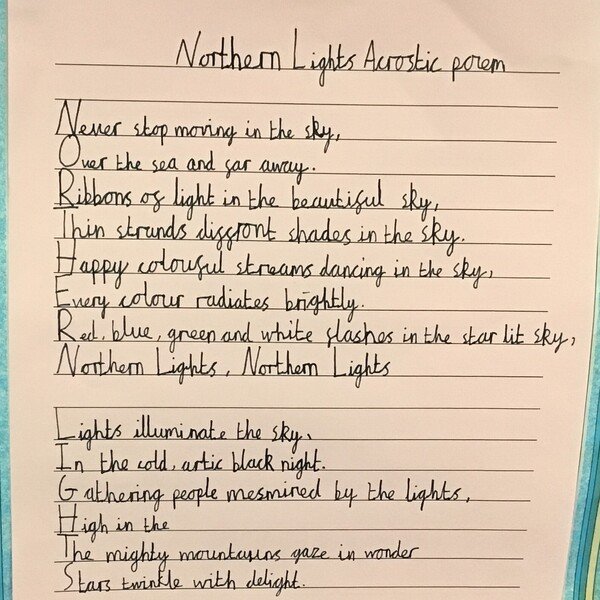 Northern Lights Acrostic poem
Never stop moving in the sky,
Over the sea and far away.
Ribbons of light in the beautiful sky,
Thin strands diffront shades in the sky.
Happy colourful streams dancing in the sky,
Every colour radiates brightly.
Red, blue, green and white flashes in the star lit sky,
Northern Lights, Northern Lights
Lights illuminate the sky,
In the cold, artic black night.
Gathering people mesmired by the lights,
High in the
The mighty mountains gaze in wonder
Stars twinkle with delight.